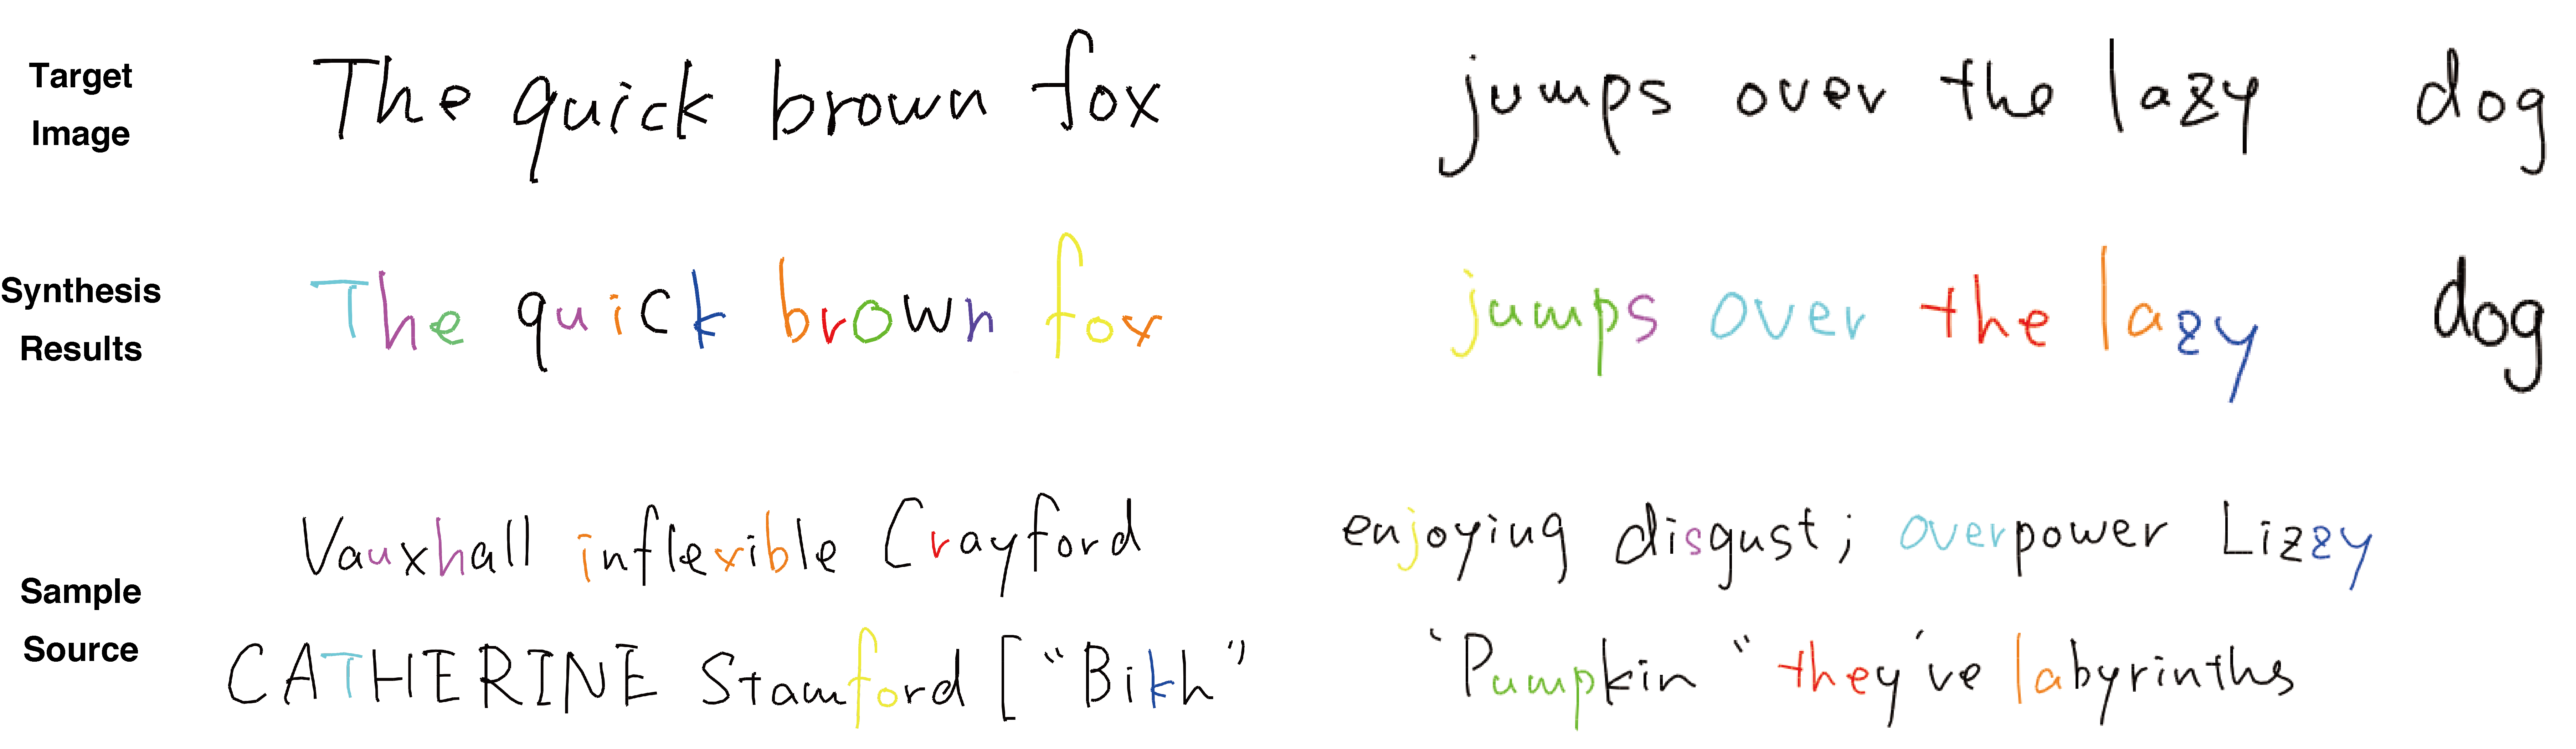 Target Image The quick brown fox jumps over the lazy dog
Synthesis Results The quick brown fox jumps over the lazy dog
Sample Source
Vauxhall inflexible Crayford enjoying disgust; overpower Lizzy
CATHERINE Stamford ["Bikh" 'Pumpkin" they've labyrinths